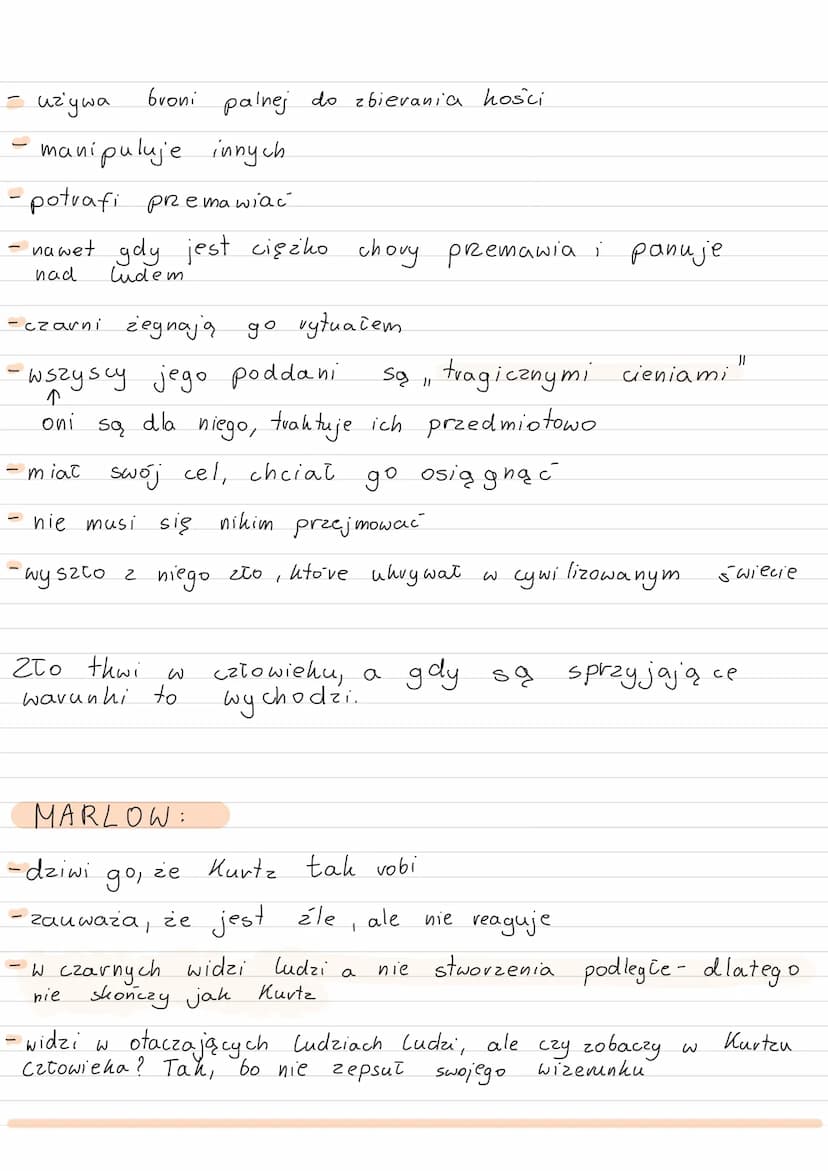 - używa broni palnej do zbierania kości
- manipuluje innych
- potrafi przemawiać
- nawet gdy jest ciężko chory przemawia i panuje
nad ludem
- czarni żegnają go rytuałem
- wszyscy jego poddani są „tragicznymi cieniami"
↑
oni są dla niego, traktuje ich przedmiotowo
- miał swój cel, chciał go osiągnąć
- nie musi się nikim przejmować
- wyszło z niego zło, które ukrywał w cywilizowanym świecie
Zło tkwi w człowieku, a gdy są sprzyjające
warunki to wychodzi.
MARLOW:
- dziwi go, że Kurtz tak robi
- zauważa, że jest źle, ale nie reaguje
- w czarnych widzi ludzi a nie stworzenia podległe - dlatego
nie skończy jak Kurtz
- widzi w otaczających ludziach ludzi, ale czy zobaczy w Kurtzu
człowieka? Tak, bo nie zepsuł swojego wizerunku